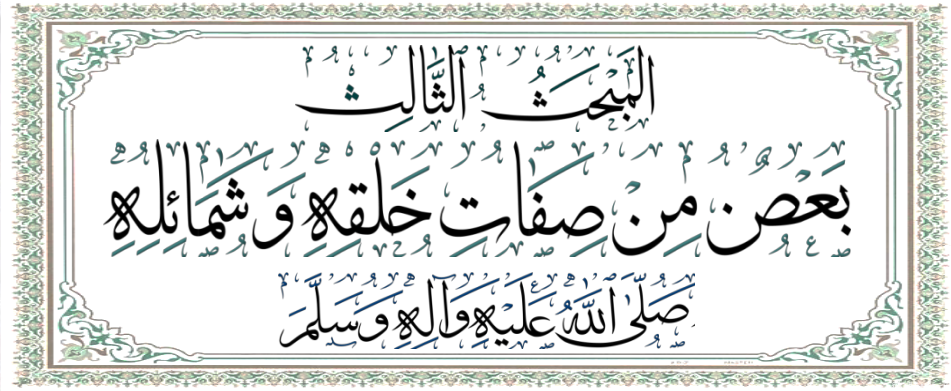 المَبْحَثُ الثَّالِث
بَعْضٌ مِنْ صِفَاتِ خَلْقِهِ وَشَمَائِلِهِ
صَلَّى اللهُ عَلَيْهِ وَآلِهِ وَسَلَّمَ